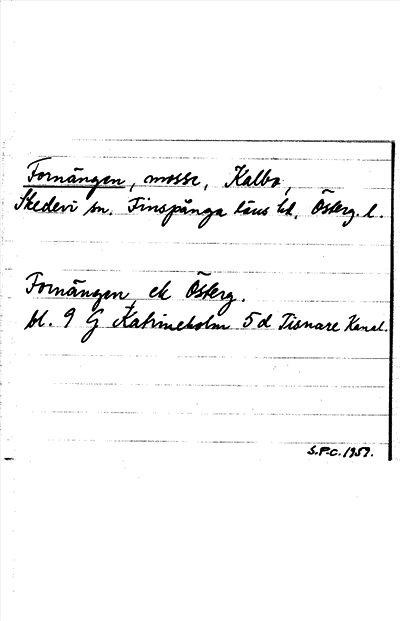 Fornängen, mosse, Kalbo,
Skedevi sn. Finspånga läns hd, Österg. l.
Fornängen, ek Österg.
bl. 9 G Katrineholm 5d Tisnare Kanal.
S.P-C. 1959.